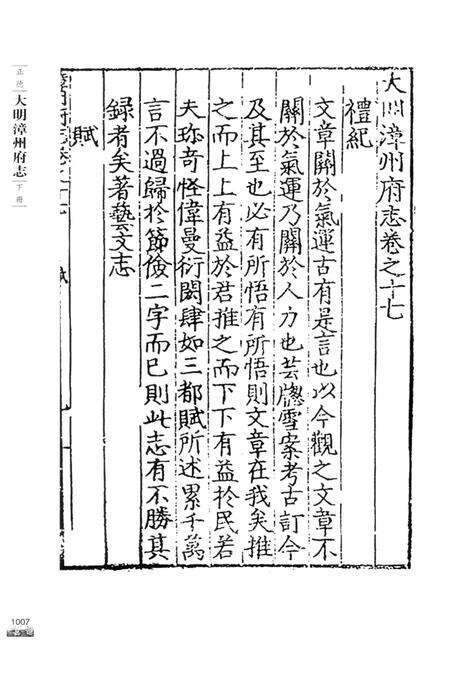 大明漳州府志卷之十七
禮紀
文章關於氣運古有是言也以今觀之文章不
關於氣運乃關於人力也芸牎雪案考古訂今
及其至也必有所悟有所悟則文章在我矣推
之而上上有益於君推之而下下有益於民若
夫珎奇怪偉曼衍閎肆如三都賦所述累千萬
言不過歸於節儉二字而已則此志有不勝其
録者矣著藝文志
賦
正德
大明漳州府志
下冊
1007